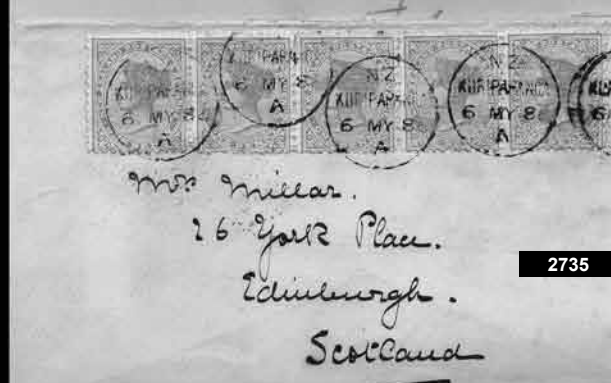 N Z
KURIPAPANGA
6 MY 8
A
KURIPAPA
6 MY 8
A
N Z
KURIPAPANGA
6 MY 8
A
N Z
KURIPAPANGA
6 MY 8
A
Mrs Millar.
26 York Place.
Edinburgh.
Scotland
2735